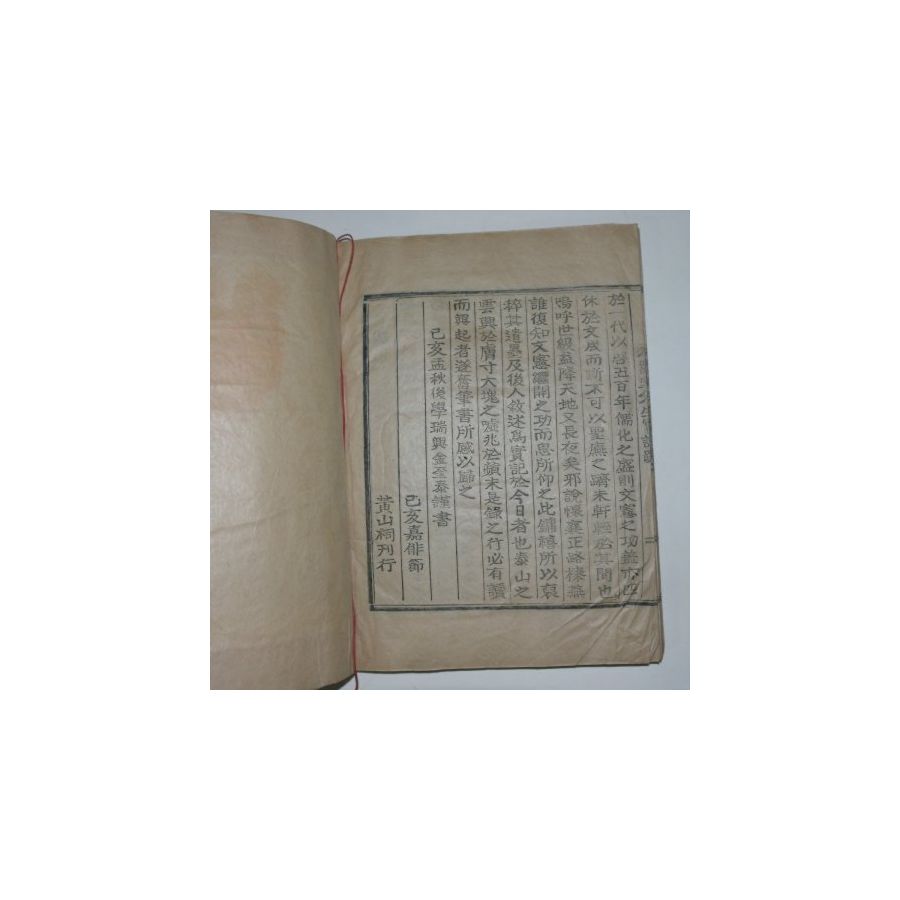 於一代以啓五百年儒化之盛則文憲之功蓋亦四
休於文成而斷不可以聖廡之躋未軒輊於其間也
嗚呼世級益降天地又長夜矣邪說懷襄正路榛蕪
誰復知文憲繼開之功而思所仰之此鏞禧所以裒
稡其遺墨及後人敘述爲實記於今日者也泰山之
雲興於膚寸大塊之噓兆於蘋末是錄之行必有讀
而興起者遂奮筆書所感以歸之
己亥孟秋後學瑞興金至泰謹書
己亥嘉俳節
黃山祠刊行